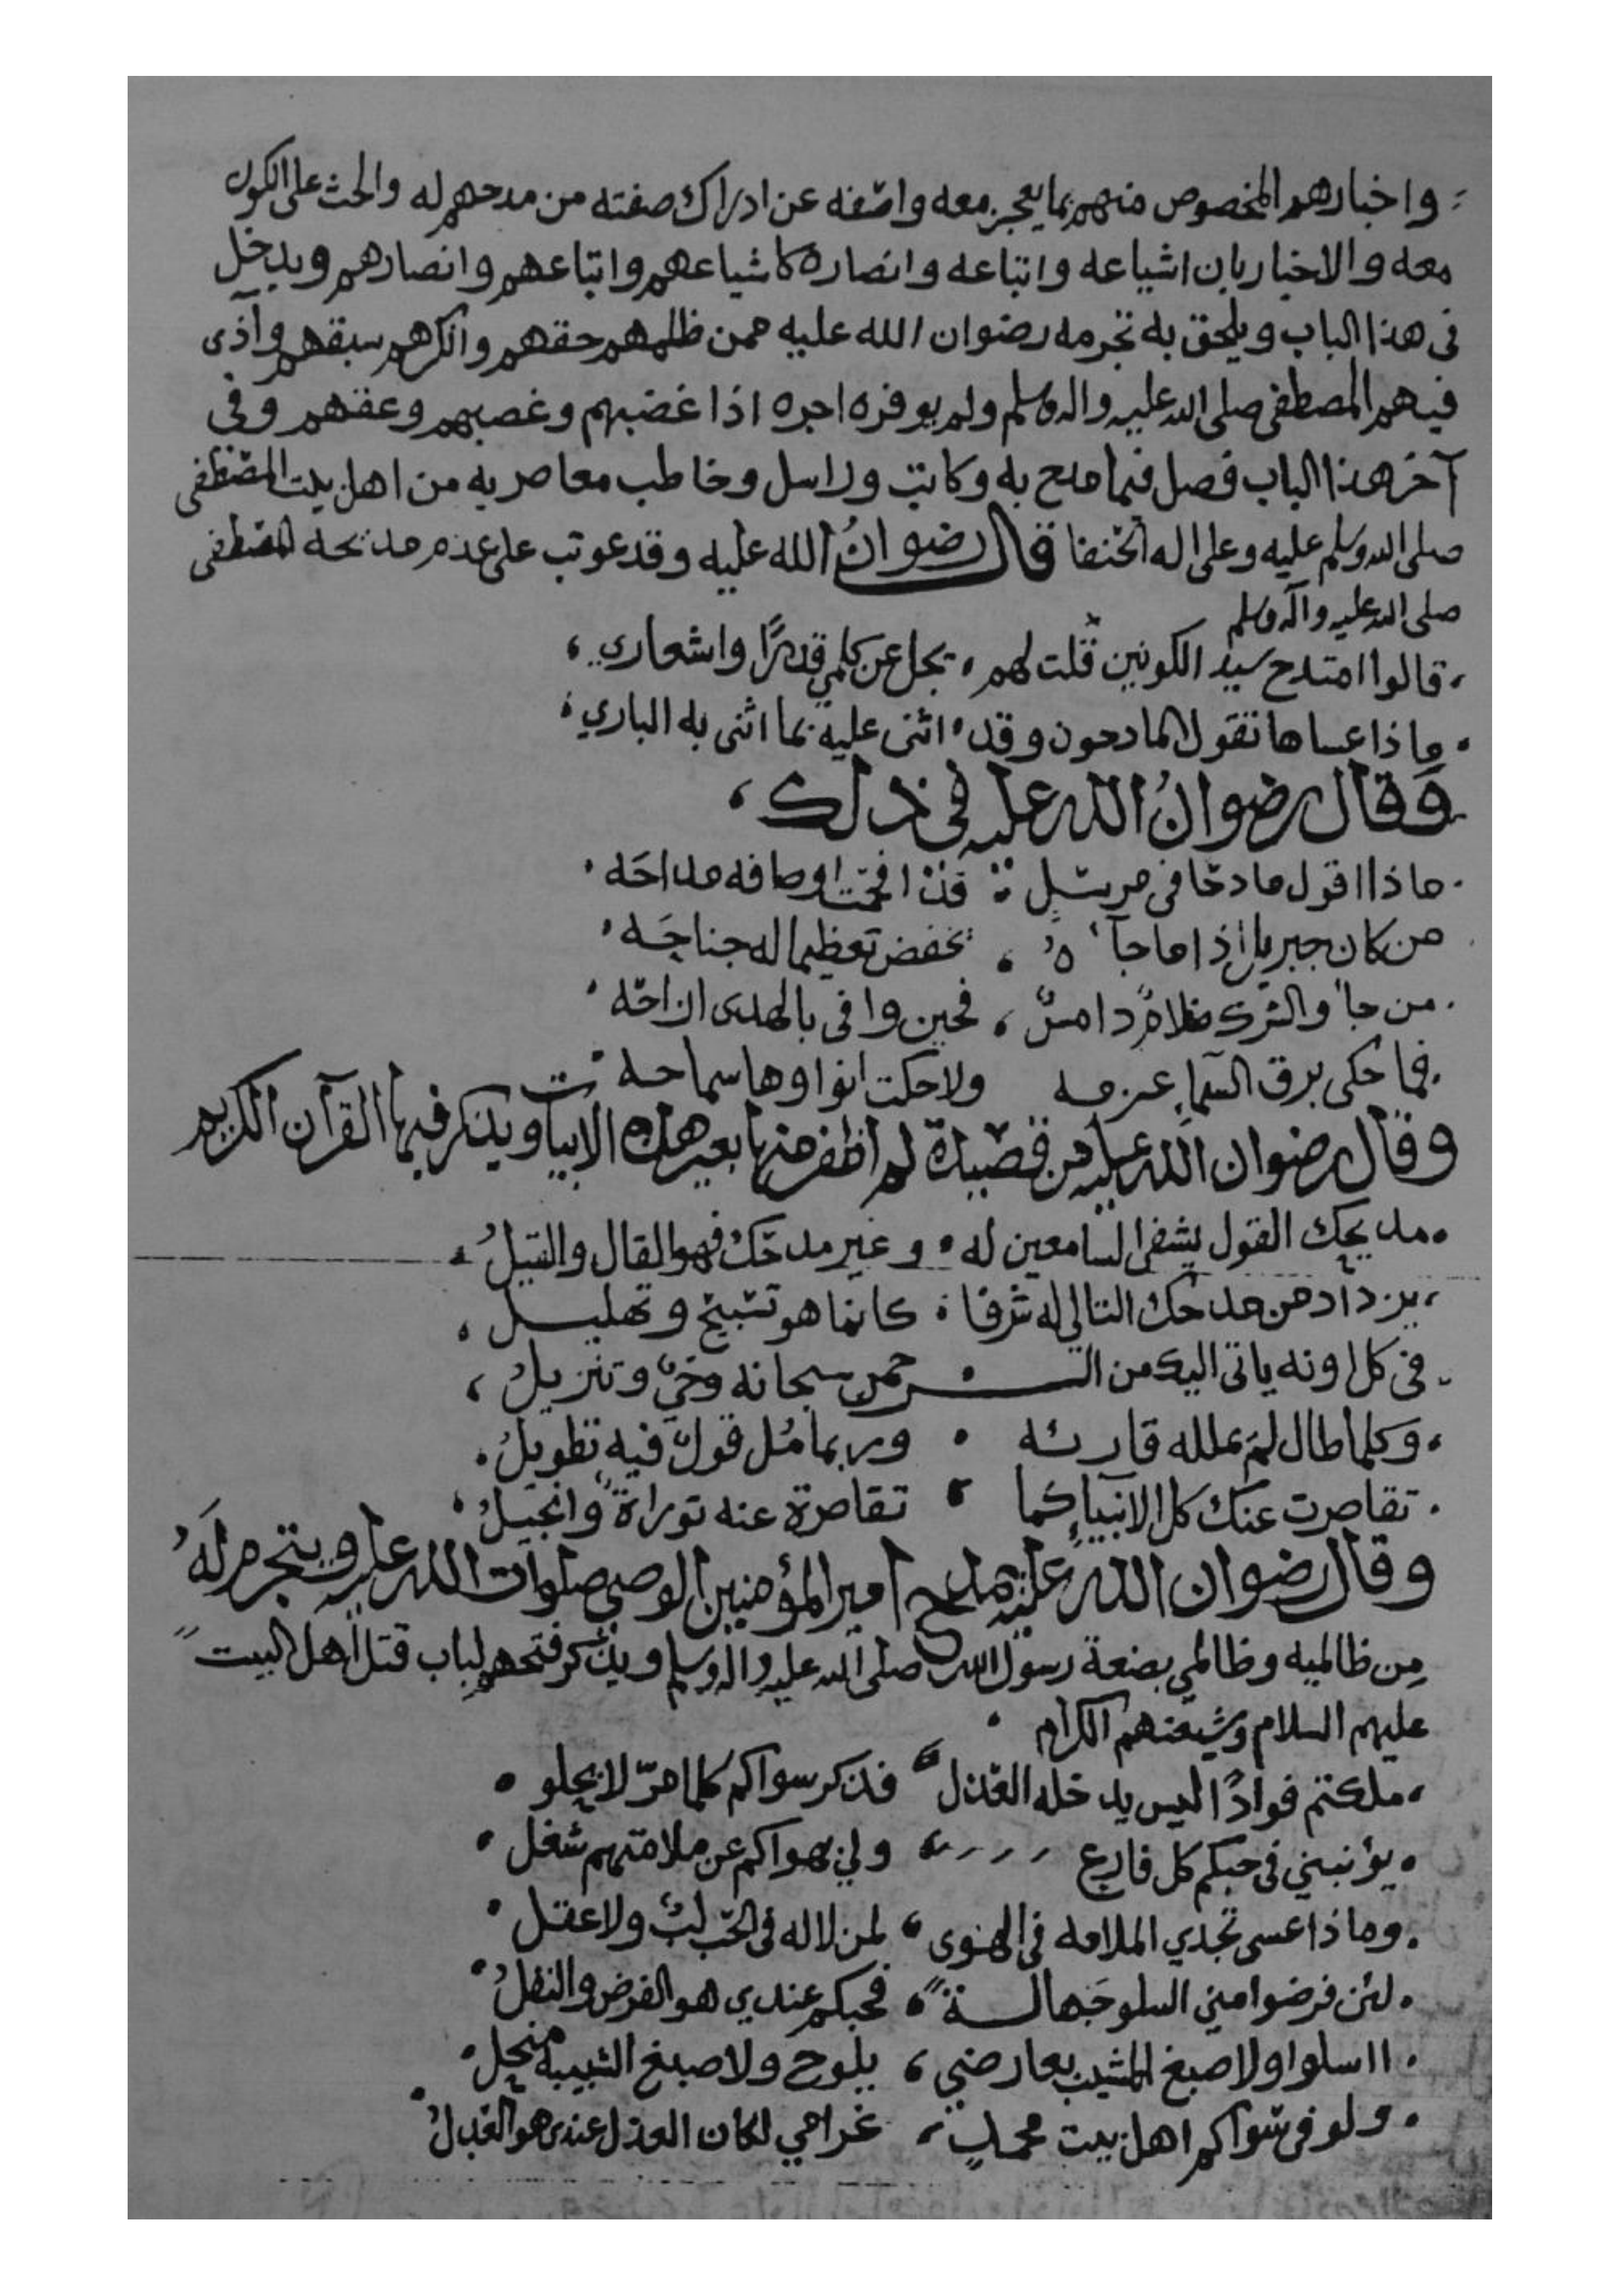 واخبارهم المخصوص منهم بما يعجز معه واصفه عن ادراك صفته من مدحهم له والحث على الكون
معه والاخبار بان اشياعه واتباعه وانصاره كاشياعهم واتباعهم وانصارهم ويدخل
في هذا الباب ويلحق به تجرمه رضوان الله عليه ممن ظلمهم حقهم وانكرهم سبقهم وآذى
فيهم المصطفى صلى الله عليه واله وسلم ولم يوفره اجره اذا غضبهم وغصبهم وعقهم وفي
آخر هذا الباب فصل فيما مدح به وكاتب وراسل وخاطب معاصريه من اهل بيت المصطفى
صلى الله وسلم عليه وعلى اله الحنفا قال رضوان الله عليه وقد عوتب على عدم مديحه المصطفى
صلى الله عليه وآله وسلم
قالوا امتدح سيد الكونين قلت لهم ، يجل عن كلمي قدرًا واشعاري ،
وماذا عساها تقول المادحون وقد ، اثنى عليه بما اثنى به الباري ،
وقال رضوان الله عليه في ذلك ،
ماذا اقول مادحًا في مرسل : قد افحمت اوصافه مداحه
من كان جبريل إذا ما جآءه ، يخفض تعظيما له جناحه
من جاء والشرك ظلام دامس ، فحين وافى بالهدى ازاحه
فما حكى برق السماء عزمه ولا حكت انواوها سماحه
وقال رضوان الله عليه من قصيدة لم اظفر منها بغير هذه الابيات ويذكر فيها القرآن الكريم
مديحك القول يشفي السامعين له ، وغير مدحك فهو القال والقيل
يزداد من مدحك التالي له شرفا ، كانما هو تسبيح وتهليل ،
في كل اونه ياتي اليك من الرحمن سبحانه وحي وتنزيل ،
وكلما طال لم يملله قارئه ، وربما مُل قول فيه تطويل
تقاصرت عنك كل الانبياء كما ، تقاصرة عنه توراة وانجيل
وقال رضوان الله عليه يمدح أمير المؤمنين الوصي صلوات الله عليه ويتجرم له
من ظالميه وظالمي بضعة رسول الله صلى الله عليه واله وسلم ويذكر فتحهم لباب قتل اهل البيت
عليهم السلام وشيعتهم الكرام
ملكتم فوادًا ليس يدخله العذل ، فذكر سواكم كلما مرّ لا يحلو
يؤنبني في حبكم كل فارع ، ولي بهواكم عن ملامتهم شغل
وماذا عسى تجدي الملامه في الهوى ، لمن لا له في الحب لب ولا عقل
لئن فرضوا مني السلو جهالة ، فحبكم عندي هو الفرض والنفل
ااسلوا ولا صبغ المشيب بعارضي ، يلوح ولا صبغ الشبيبة منحل
ولو في سواكم اهل بيت محمد ، غرامي لكان العذل عندى هو العدل